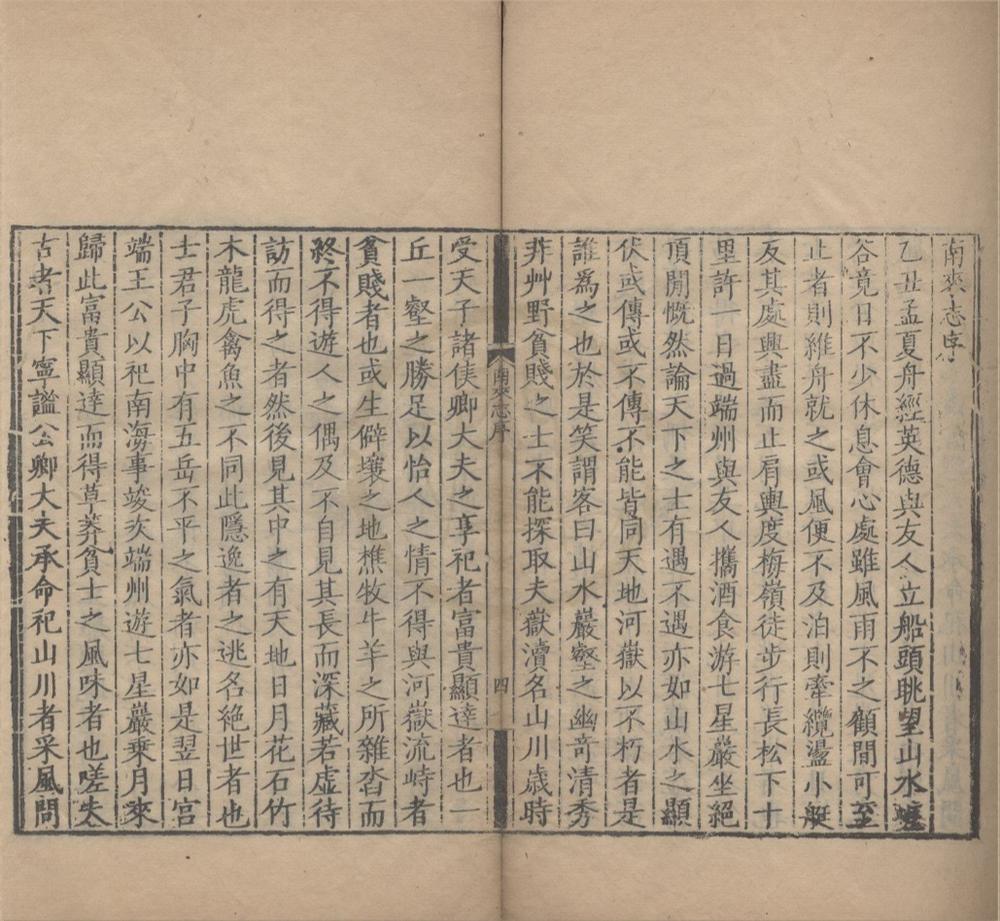 南來志序
乙丑孟夏舟經英德與友人立船頭眺望山水巉
谷竟日不少休息會心處雖風雨不之顧間可至
止者則維舟就之或風便不及泊則牽纜盪小艇
及其處興盡而止肩輿度梅嶺徒步行長松下十
里許一日過端州與友人攜酒食游七星巖坐絕
頂閒慨然論天下之士有遇不遇亦如山水之顯
伏或傳或不傳不能皆同天地河嶽以不朽者是
誰為之也於是笑謂客曰山水巖壑之幽奇清秀
非艸野貧賤之士不能探取夫嶽瀆名山川歲時
南來志序
四
受天子諸侯卿大夫之享祀者富貴顯達者也一
丘一壑之勝足以怡人之情不得與河嶽流峙者
貧賤者也或生僻壤之地樵牧牛羊之所雜沓而
終不得遊人之偶及不自見其長而深藏若虛待
訪而得之者然後見其中之有天地日月花石竹
木龍虎禽魚之不同此隱逸者之逃名絕世者也
士君子胸中有五岳不平之氣者亦如是翌日宮
端王公以祀南海事竣次端州遊七星巖乗月來
歸此富貴顯達而得草莽貧士之風味者也嗟夫
古者天下寧謐公卿大夫承命祀山川者采風問